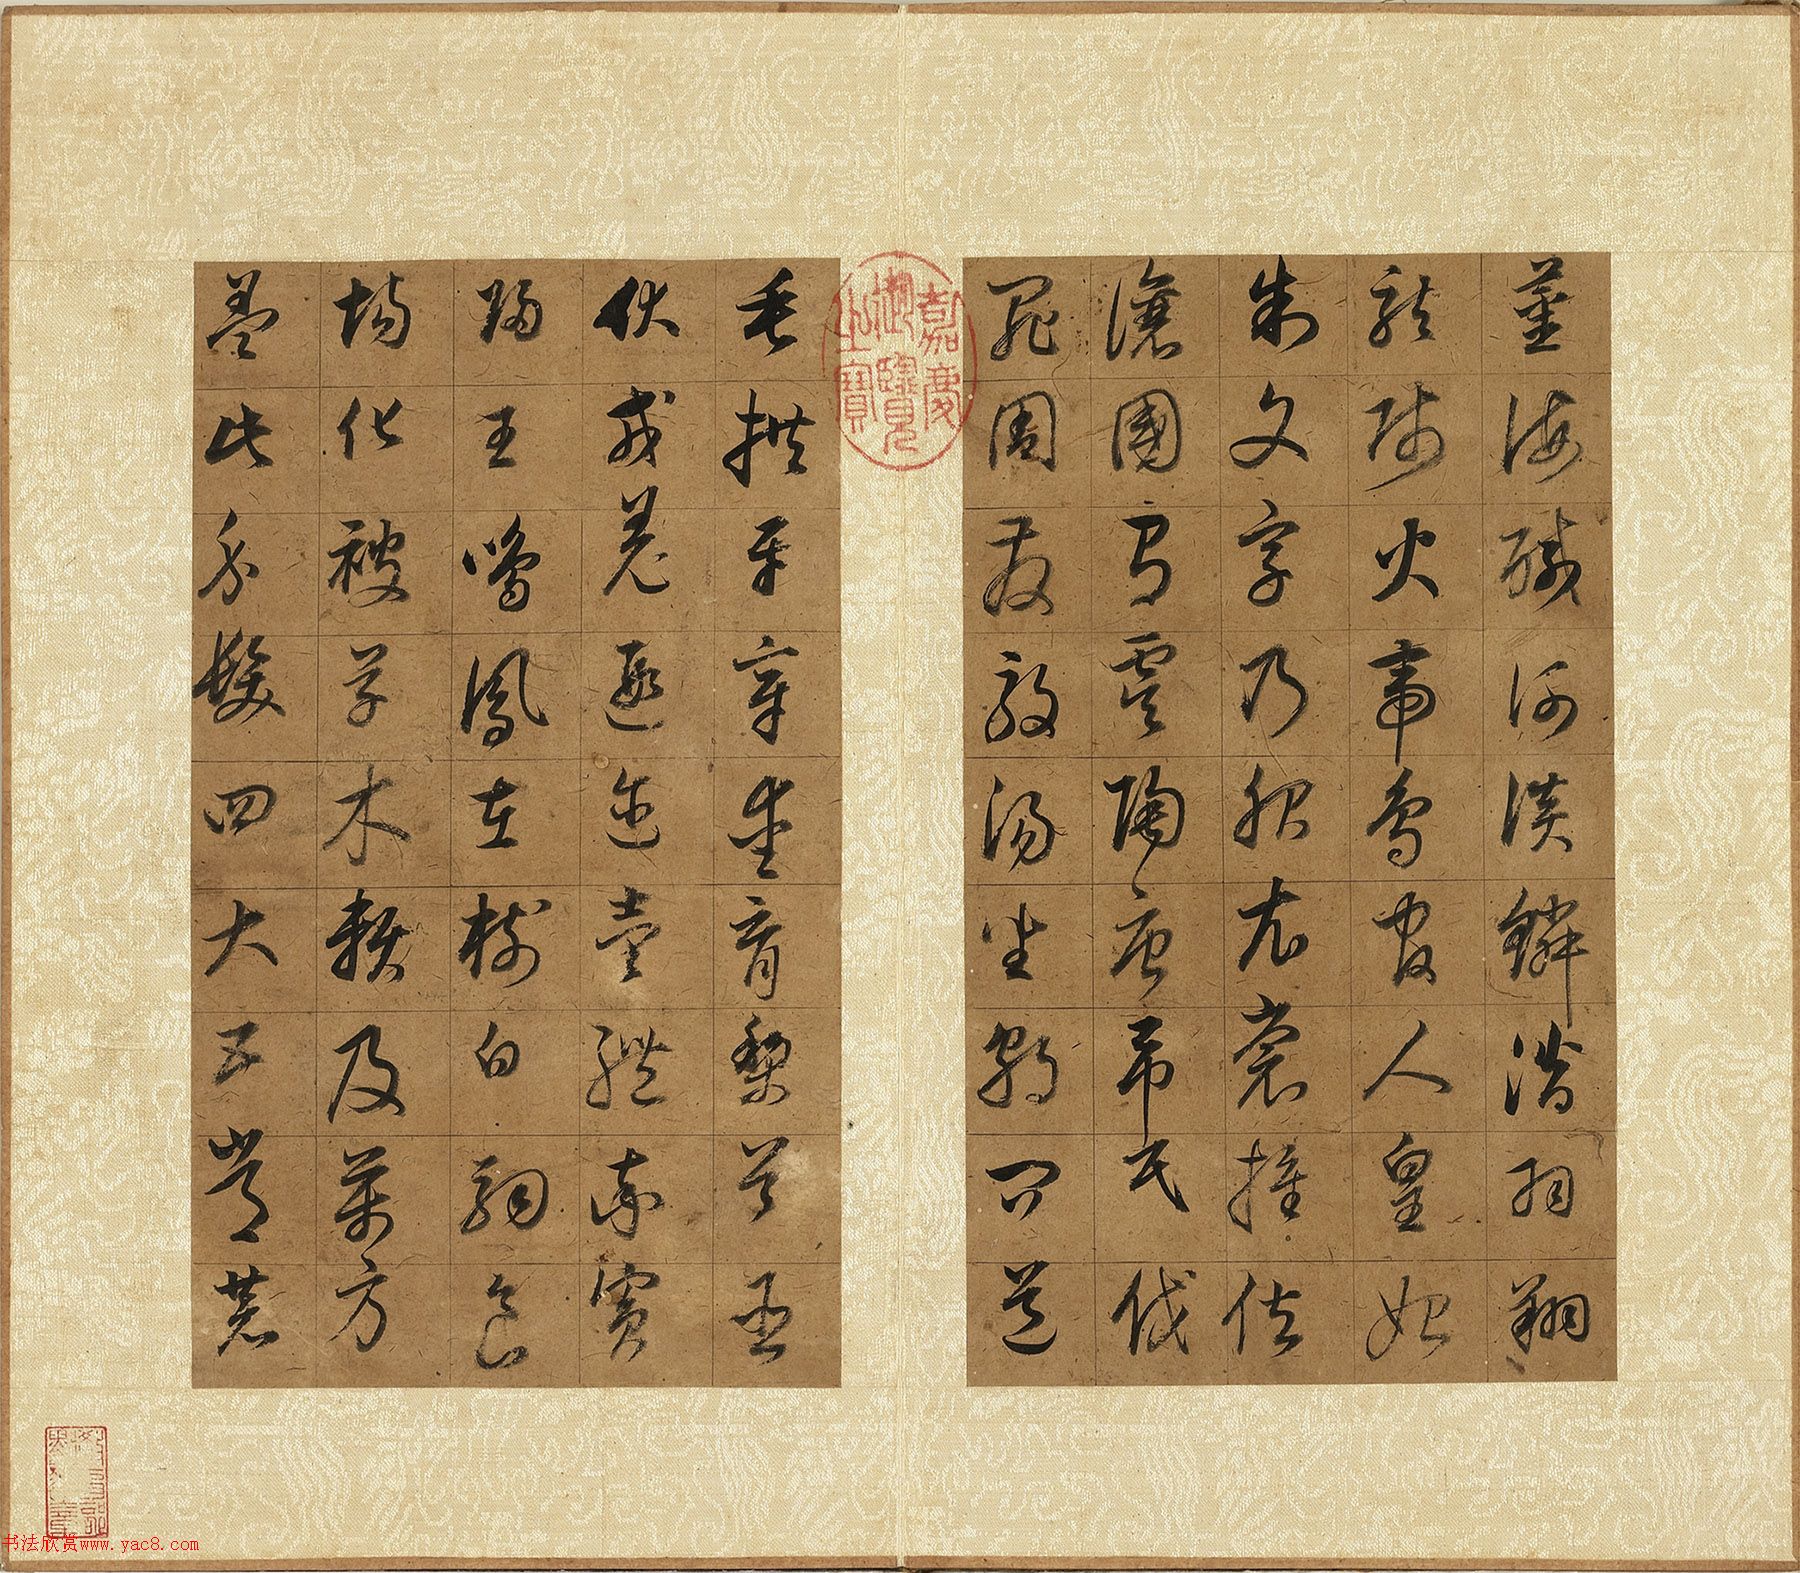 薑海醎河淡鱗潛羽翔
龍師火帝鳥官人皇始
制文字乃服衣裳推位
讓國有虞陶唐弔民伐
罪周發殷湯坐朝問道
垂拱平章愛育黎首臣
伏戎羌遐邇壹體率賓
歸王鳴鳳在樹白駒食
場化被草木賴及萬方
蓋此身髮四大五常恭
嘉慶
御覽
之寶
书法欣赏www.yac8.com